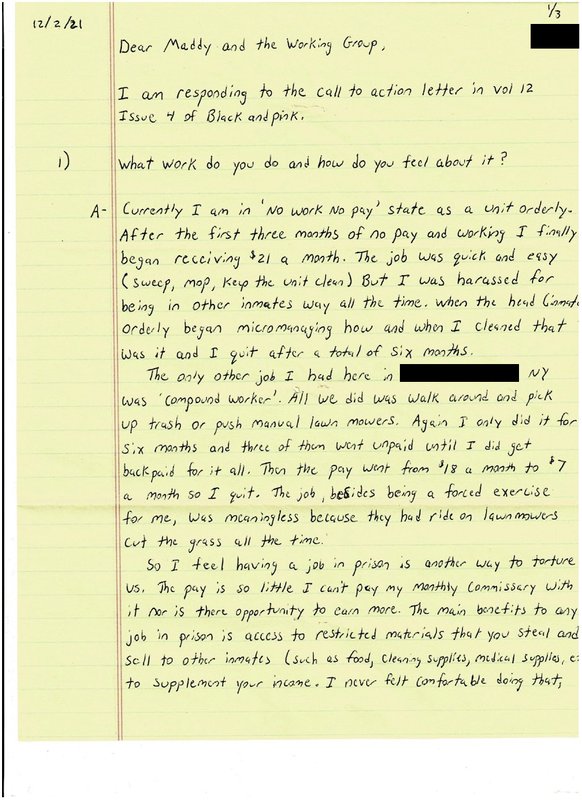 1/3
12/2/21
Dear Maddy and the Working Group,
I am responding to the call to action letter in vol 12
Issue 4 of Black and pink.
1) What work do you do and how do you feel about it?
A- Currently I am in 'No work No pay' state as a unit orderly.
After the first three months of no pay and working I finally
began receiving $21 a month. The job was quick and easy
(sweep, mop, keep the unit clean) But I was harassed for
being in other inmates way all the time. When the head (inmate
orderly began micromanaging how and when I cleaned that
was it and I quit after a total of six months.
The only other job I had here in NY
was 'compound worker'. All we did was walk around and pick
up trash or push manual lawn mowers. Again I only did it for
six months and three of them went unpaid until I did get
backpaid for it all. Then the pay went from $18 a month to $7
a month so I quit. The job, besides being a forced exercise
for me, was meaningless because they had ride on lawnmowers
cut the grass all the time.
So I feel having a job in prison is another way to torture
us. The pay is so little I can't pay my monthly commissary with
it nor is there opportunity to earn more. The main benefits to any
job in prison is access to restricted materials that you steal and
sell to other inmates (such as food, cleaning supplies, medical supplies,
to supplement your income. I never felt comfortable doing that,